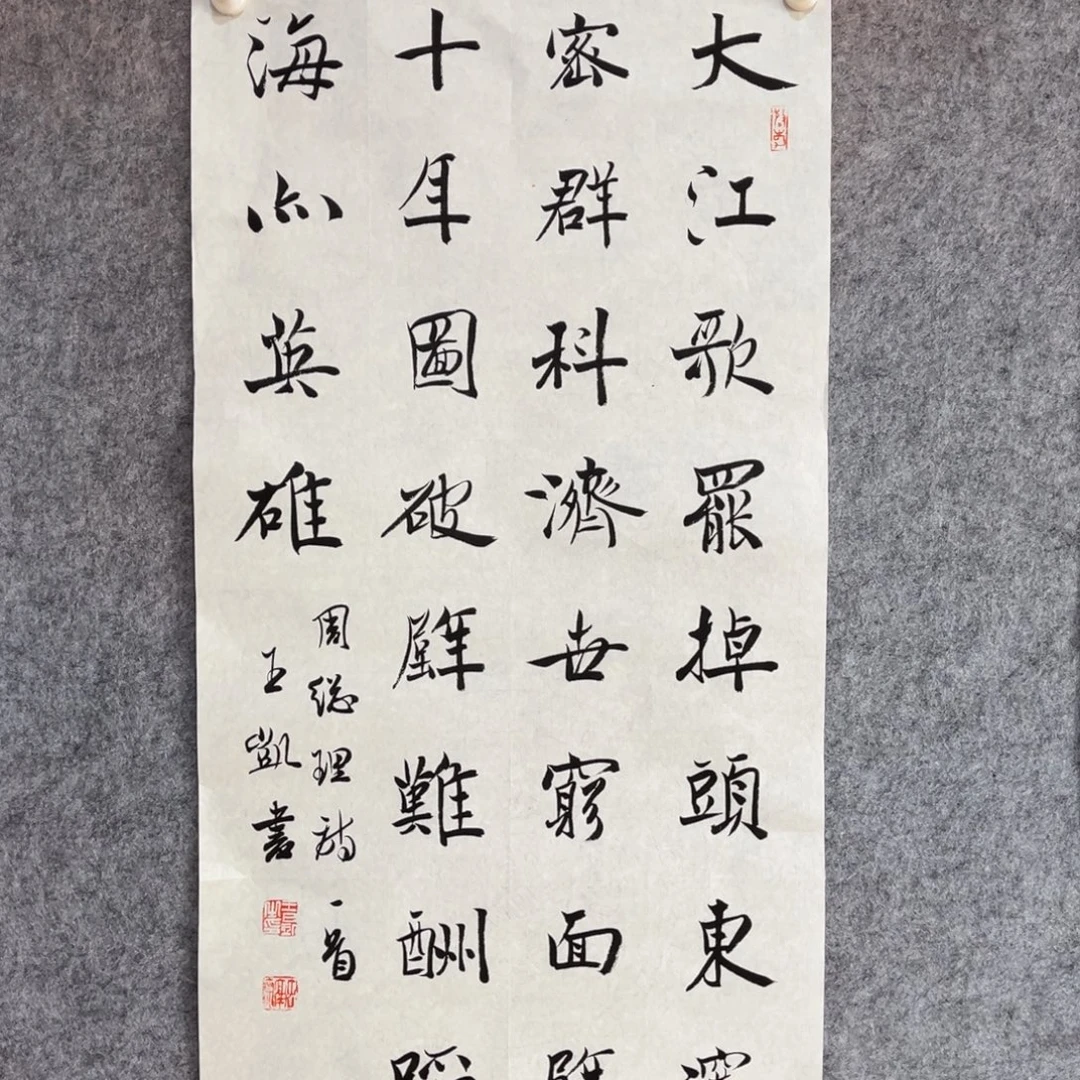 大江歌罷掉頭東
密群科濟世窮面
十年圖破壁難酬
海亦英雄
周總理詩一首
王凱書